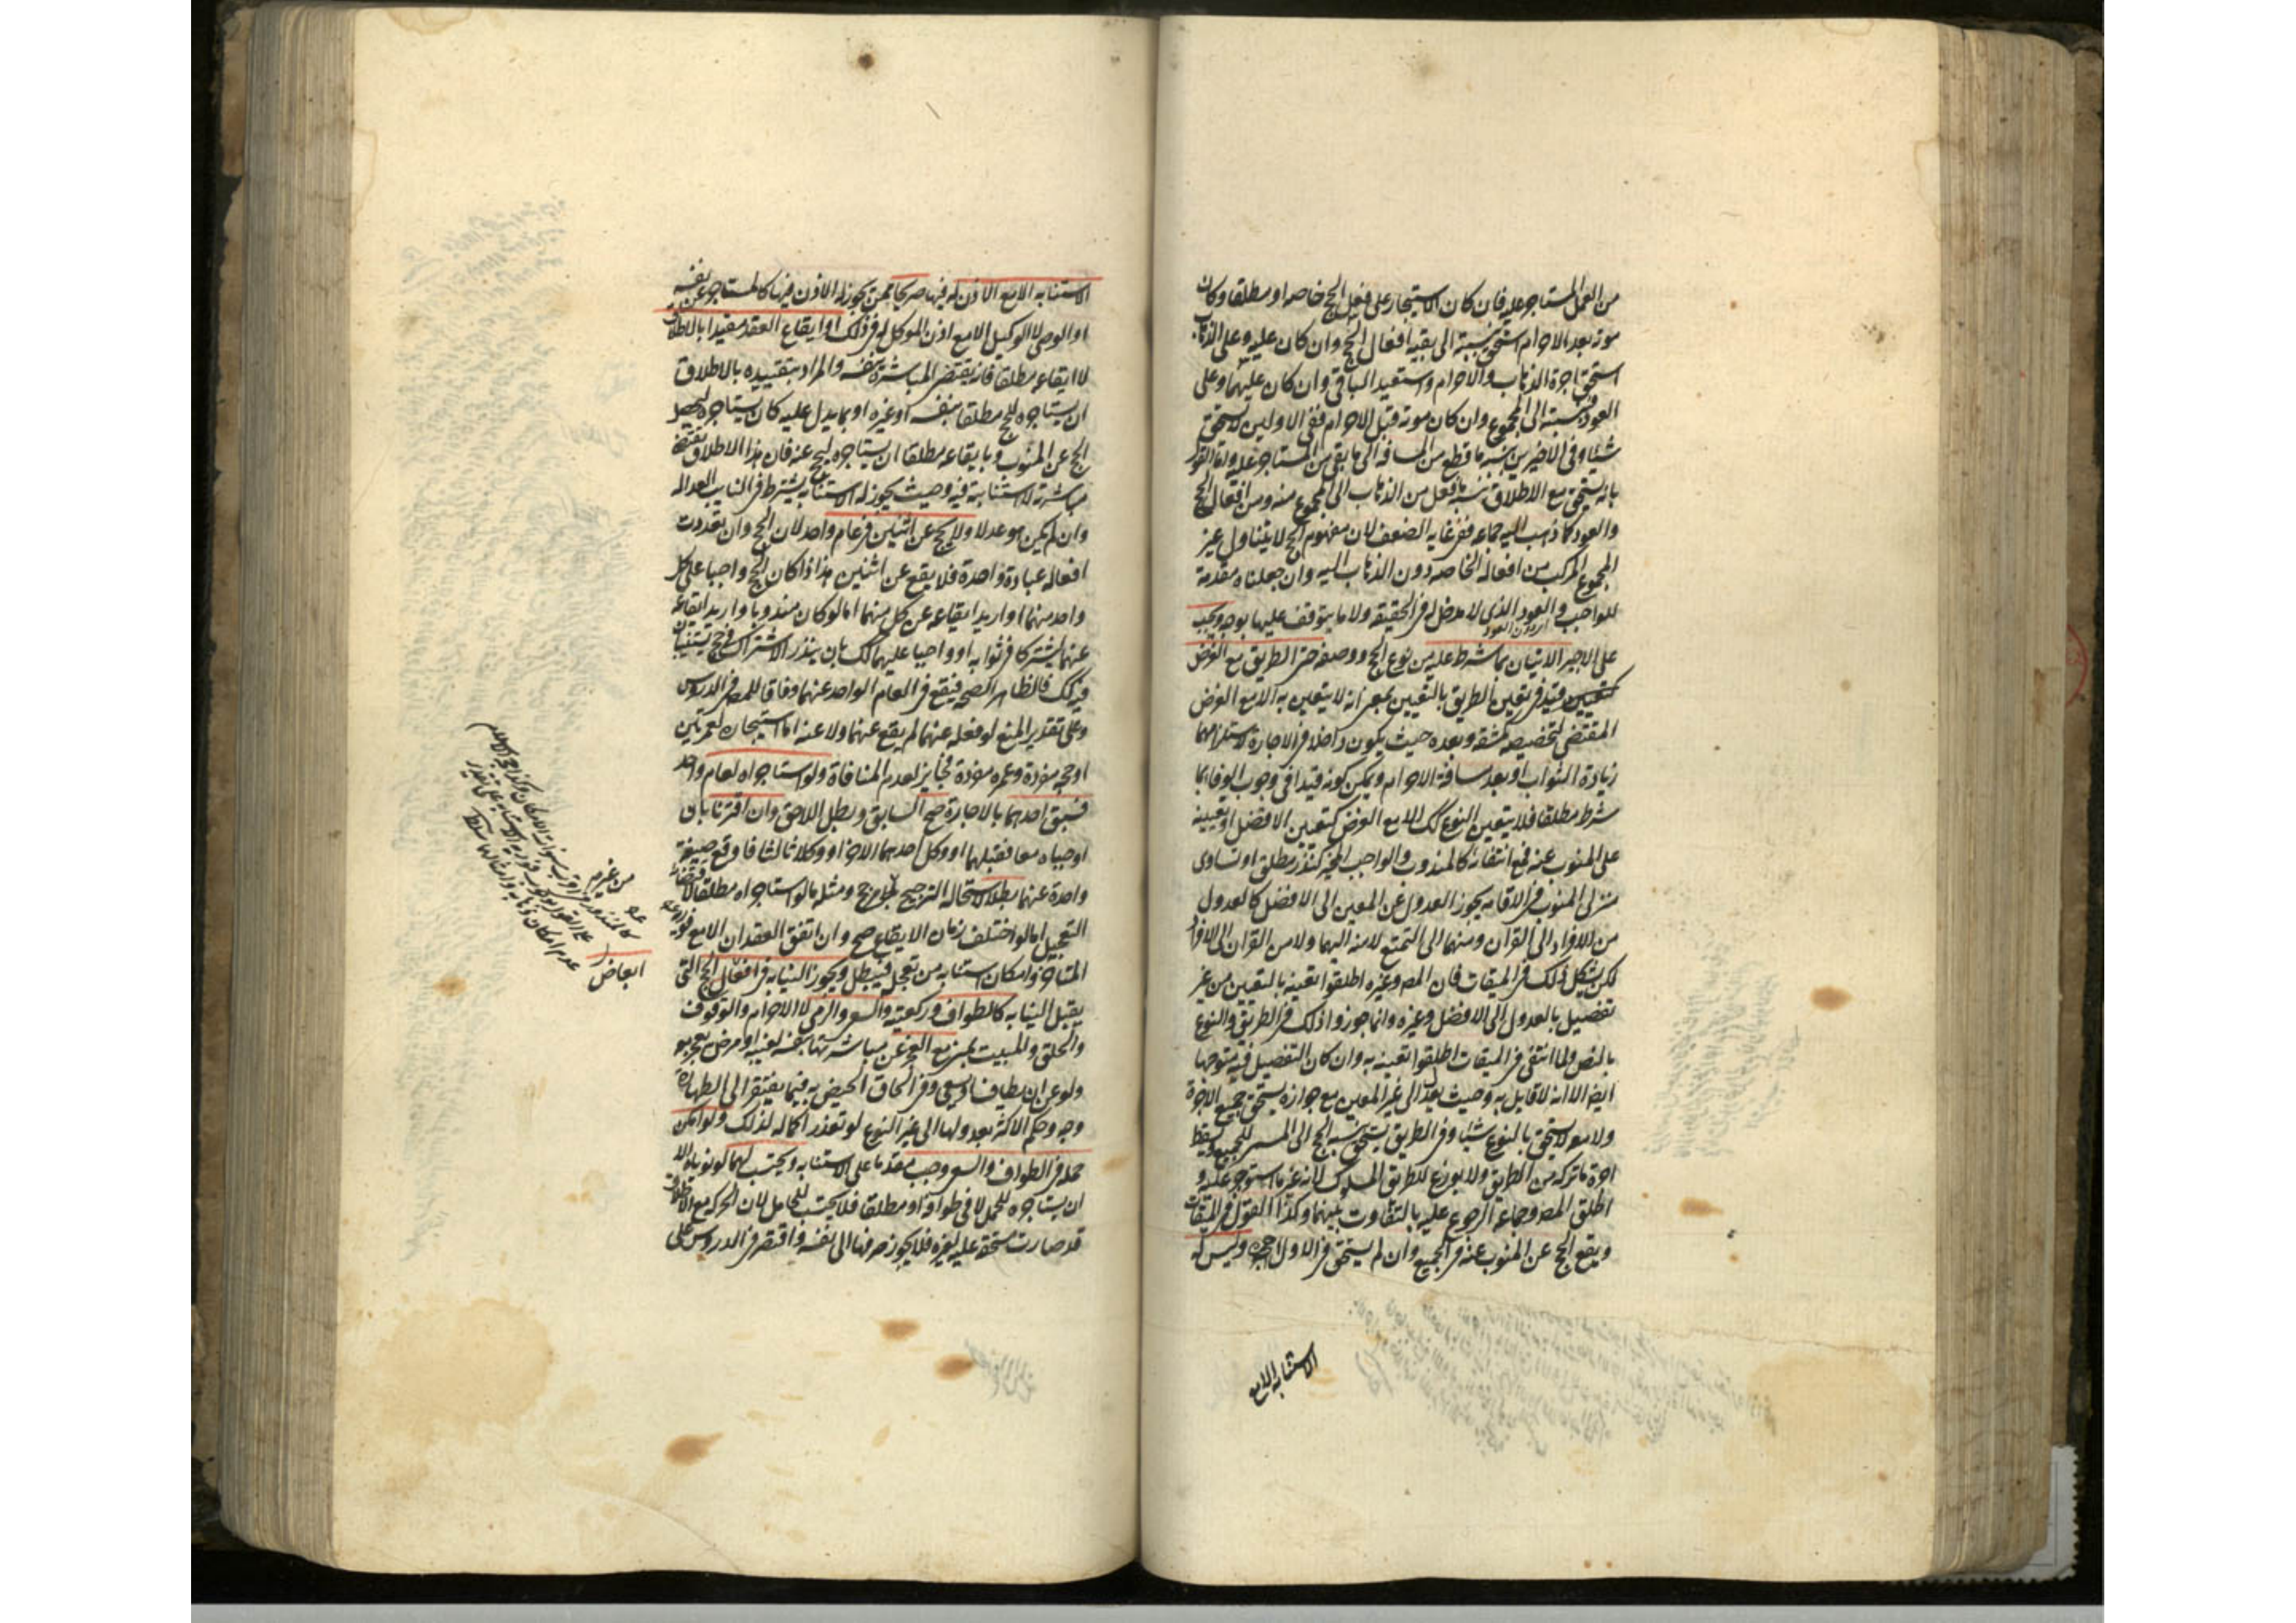 من العمل المستاجر عليه فان كان الاستيجار على فعل الحج خاصه او مطلقا وكان
موته بعد الاحرام استحق بنسبته الى بقية افعال الحج وان كان عليه وعلى الذهاب
استحق اجرة الذهاب والاحرام واستعيد الباقى وان كان عليهما وعلى
العود فبنسبته الى المجموع وان كان موته قبل الاحرام ففى الاولين لا يستحق
شيئا وفى الاخيرين بنسبة ما قطع من المسافه الى ما بقى من المستاجر عليه واما القول
بانه يستحق مع الاطلاق بنسبة ما فعل من الذهاب الى المجموع منه ومن افعال الحج
والعود كما ذهب اليه جماعه ففى غايه الضعف لان مفهوم الحج لا يتناول غير
المجموع المركب من افعاله الخاصه دون الذهاب اليه وان جعلناه مقدمة
للواجب والعود الذى لا مدخل له فى الحقيقه ولا ما يتوقف عليها بوجه ويجب
على الاجير الاتيان بما شرط عليه من نوع الحج ووصفه حتى الطريق مع الغرض
قيد فى تعين الطريق بالتعيين بمعنى انه لا يتعين به الا مع الغرض
المقتضى لتخصيصه كمشقه وبعده حيث يكون داخلا فى الاجارة لاستلزامهما
زيادة الثواب او بعد مسافة الاحرام ويمكن كونه قيدا فى وجوب الوفا بما
شرط مطلقا فلا يتعين النوع كك الا مع الغرض كتعين الافضل او تعيينه
على المنوب عنه فمع انتفائه كالمندوب والواجب المخير كنذر مطلق او تساوى
منزلى المنوب فى الاقامه يجوز العدول عن المعين الى الافضل كالعدول
من الافراد الى القران ومنهما الى التمتع لا منه اليهما ولا من القران الى الافراد
لكن يشكل ذلك فى الميقات فان المص وغيره اطلقوا تعينه بالتعيين من غير
تفصيل بالعدول الى الافضل وغيره وانما جوزوا ذلك فى الطريق والنوع
بالنص ولما انتفى فى الميقات اطلقوا تعينه به وان كان التفصيل فيه متوجها
ايضا الا انه لا قايل به وحيث يعدل الى غير المعين مع جوازه يستحق جميع الاجرة
ولا معه لا يستحق بالنوع شيئا وفى الطريق يستحق بنسبة الحج الى المسمى للجميع ويسقط
اجرة ما تركه من الطريق ولا يوزع للطريق المسلوك لانه غير ما استوجر عليه و
اطلق المص وجماعه الرجوع عليه بالتفاوت بينهما وكذا القول فى الميقات
ويقع الحج عن المنوب عنه فى الجميع وان لم يستحق فى الاول اجرة وليس له
الاستنابه الا مع
الاستنابه الا مع الاذن له فيها صريحا ممن يجوز له الاذن فيها كالمستاجر عن نفسه
او الوصى لا الوكيل الا مع اذن الموكل له فى ذلك او ايقاع العقد مقيدا بالاطلاق
لا ايقاعه مطلقا فانه يقتضى المباشرة بنفسه والمراد بتقييده بالاطلاق
ان يستاجره للحج مطلقا بنفسه او غيره او بما يدل عليه كان يستاجره ليحصل
الحج عن المنوب وبايقاعه مطلقا ان يستاجره ليحج عنه فان هذا الاطلاق يقتضى
مباشرته لا استنابته فيه وحيث يجوز له الاستنابه يشترط فى النايب العداله
وان لم يكن هو عدلا ولا يحج عن اثنين فى عام واحد لان الحج وان تعددت
افعاله عبادة واحدة فلا يقع عن اثنين هذا اذا كان الحج واجبا على كل
واحد منهما او اريد ايقاعه عن كل منهما اما لو كان مندوبا واريد ايقاعه
عنهما ليشتركا فى ثوابه او واجبا عليهما كك بان ينذر الاشتراك فى حج يستنيبان
فيه كك فالظاهر الصحه فيقع فى العام الواحد عنهما وفاقا للمص فى الدروس
وعلى تقدير المنع لو فعله عنهما لم يقع عنهما ولا عنه اما استيجاره لعمرتين
او حجه مفردة وعمره مفردة فجايز لعدم المنافاة ولو استاجراه لعام واحد
فسبق احدهما بالاجارة صح السابق وبطل اللاحق وان اقترنا بان
اوجباه معا فقبلهما او وكل احدهما الاخر او وكلا ثالثا فاوقع صيغة
واحدة عنهما بطلا لاستحاله الترجيح بلا مرجح ومثله ما لو استاجراه مطلقا لاقتضائه
التعجيل اما لو اختلف زمان الايقاع صح وان اتفق العقدان الا مع فوريه
المتاخر وامكان استنابه من يعجله فيبطل ويجوز النيابه فى ابعاض الحج التى
يقبل النيابه كالطواف وركعتيه والسعى والرمى لا الاحرام والوقوف
والحلق والمبيت بمنى مع العجز عن مباشرتها بنفسه لغيبة او مرض يعجز معه
ولو عن ان يطاف او يسعى وفى الحاق الحيض به فيما يفتقر الى الطهارة
وجه وحكم الاكثر بعدولها الى غير النوع لو تعذر اكماله لذلك ولو امكن
حمله فى الطواف والسعى وجب مقدما على الاستنابه ويحتسب لهما لو نوياه الا
ان يستاجره للحمل لا فى طوافه او مطلقا فلا يحتسب للحامل لان الحركه مع الاطلاق
قد صارت مستحقه عليه لغيره فلا يجوز صرفها الى نفسه واقتصر فى الدروس على
ابعاض